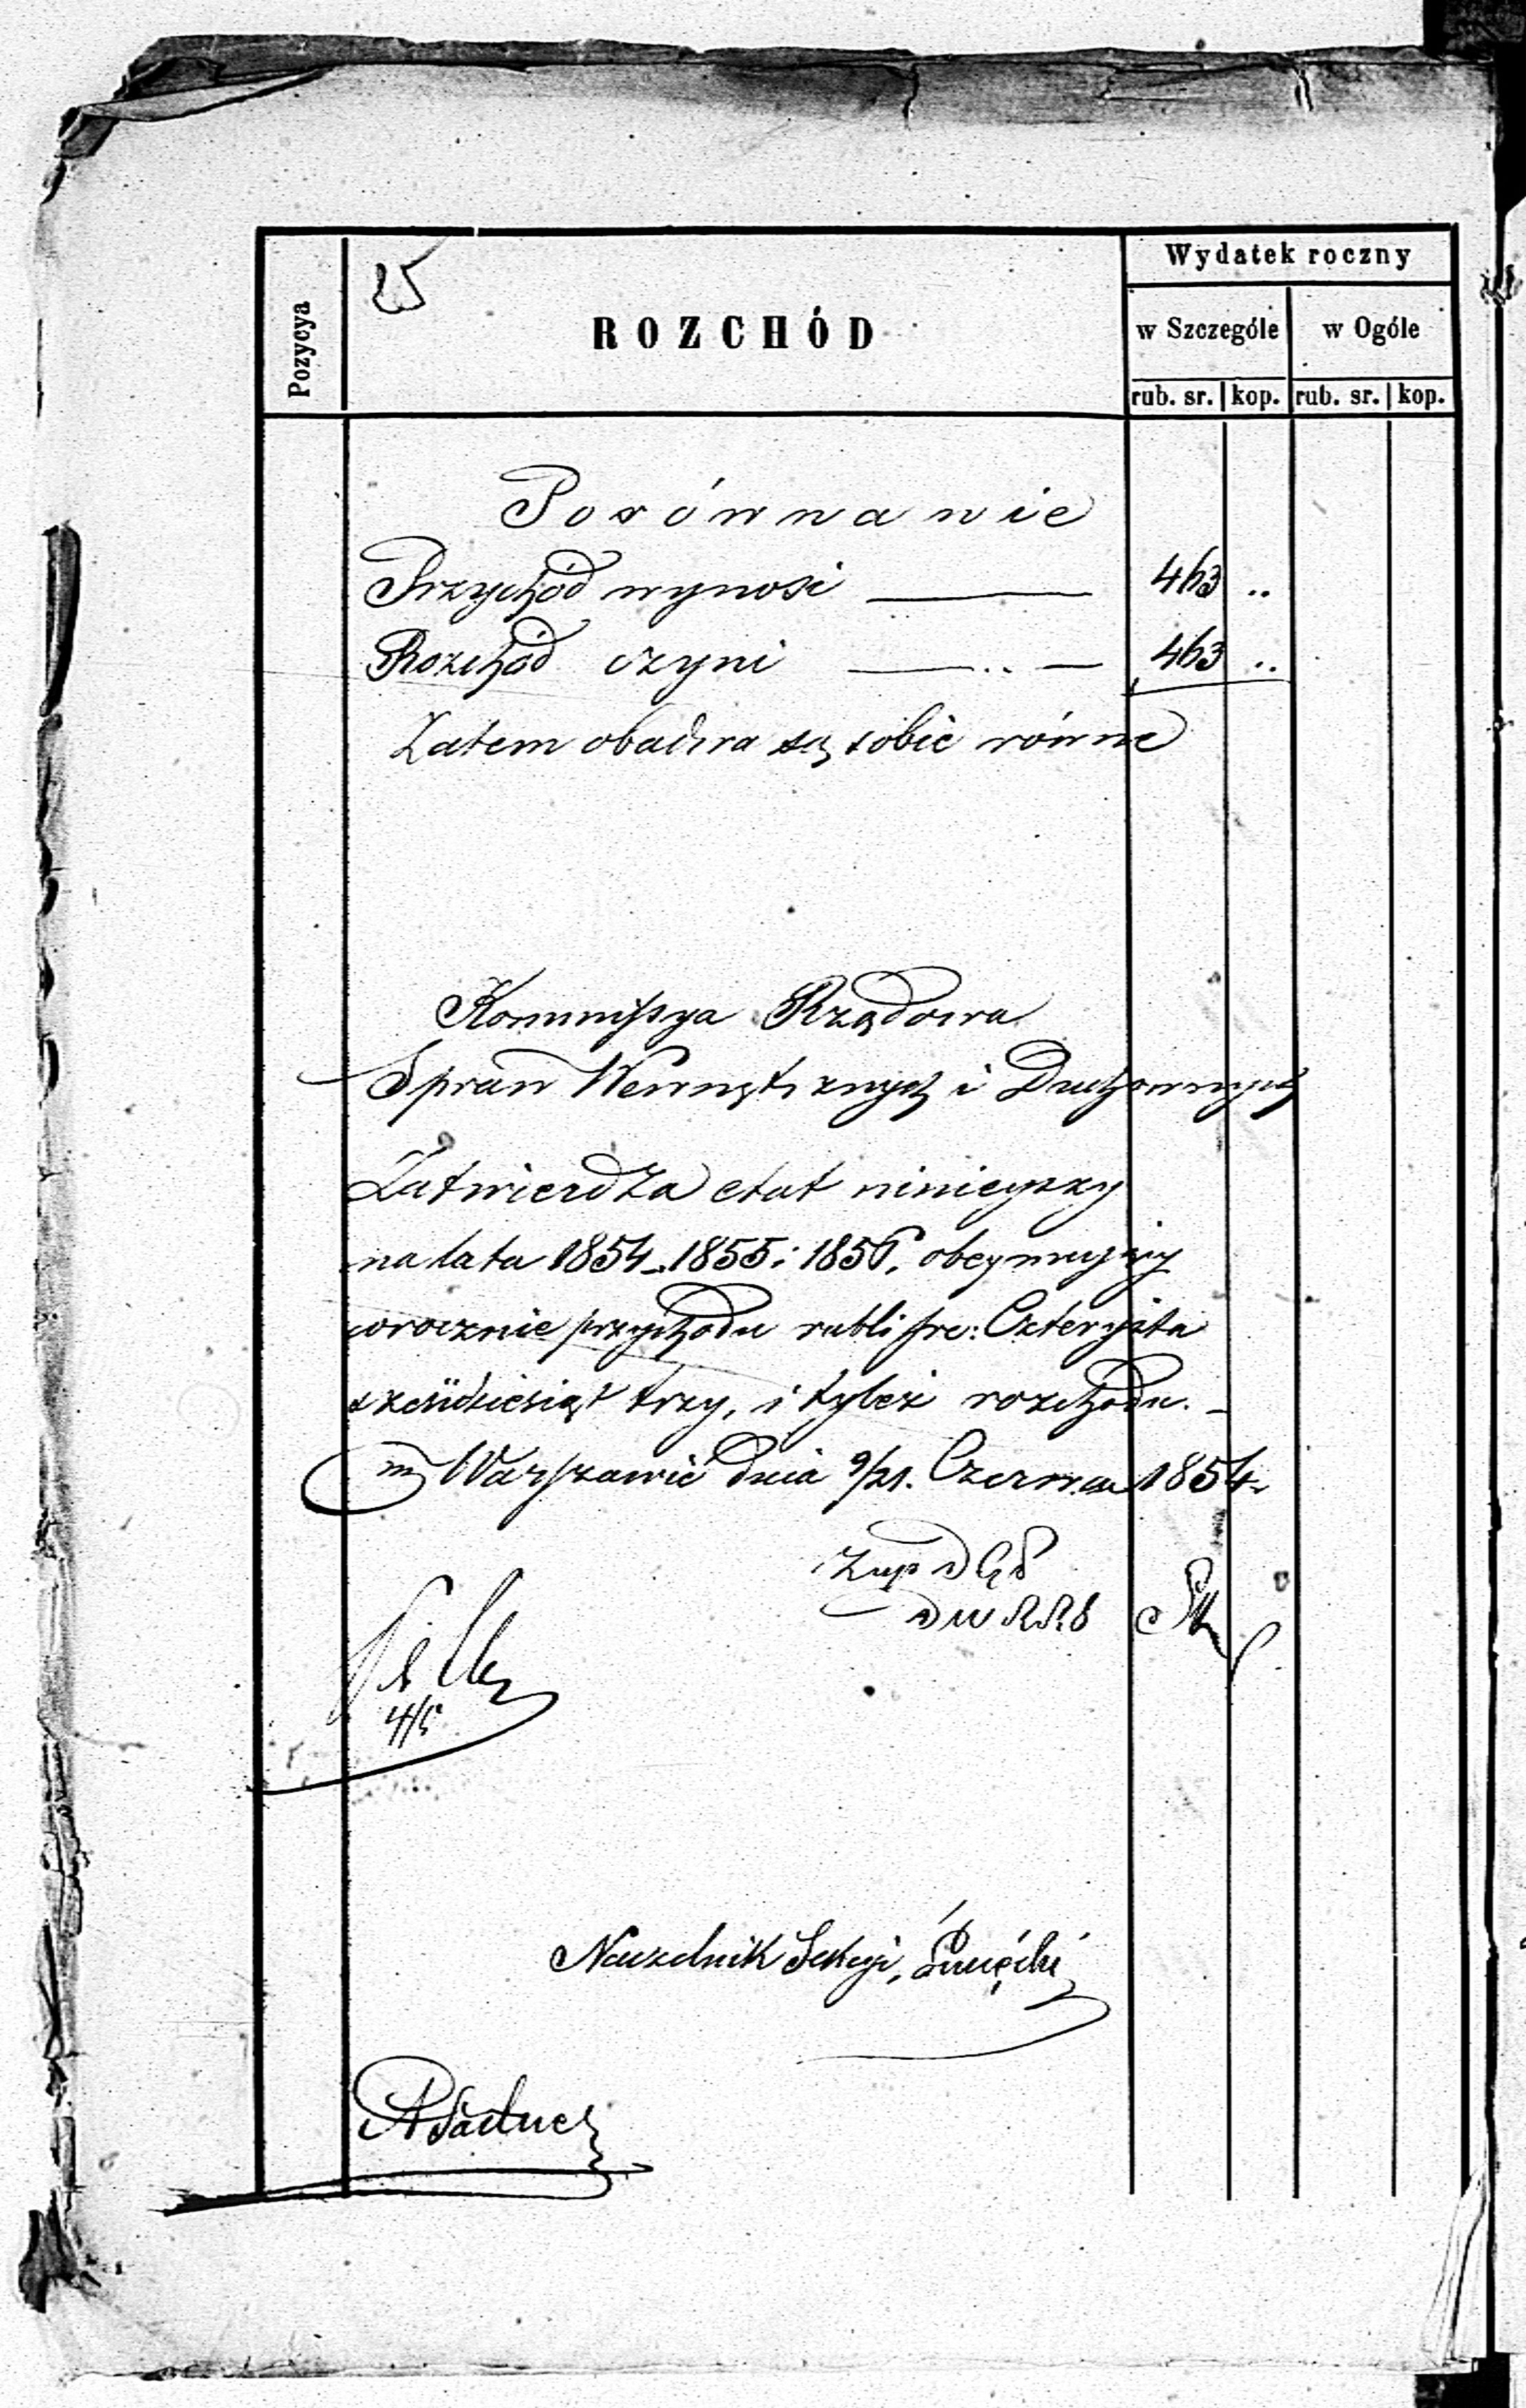 25
Pozycya
ROZCHÓD
Wydatek roczny
w Szczególe
w Ogóle
rub. sr.
kop.
rub. sr.
kop.
Porównanie
Przychód wynosi 463 ..
Rozchód czyni 463 ..
Zatem obadwa są sobie równe
Kommissya Rządowa
Spraw Wewnętrznych i Duchownych
Zatwierdza etat niniejszy
na lata 1854. 1855 i 1856, obeymujący
corocznie przychodu rubli sre: Czterysta
sześćdziesiąt trzy, i tyleż rozchodu. –
w Warszawie dnia 9/21. Czerwca 1854
4/5
Naczelnik Sekcyi,